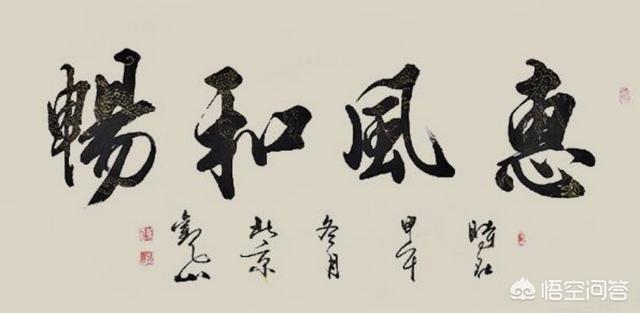 惠風和暢
時在
甲午
冬月
北京
悟空问答